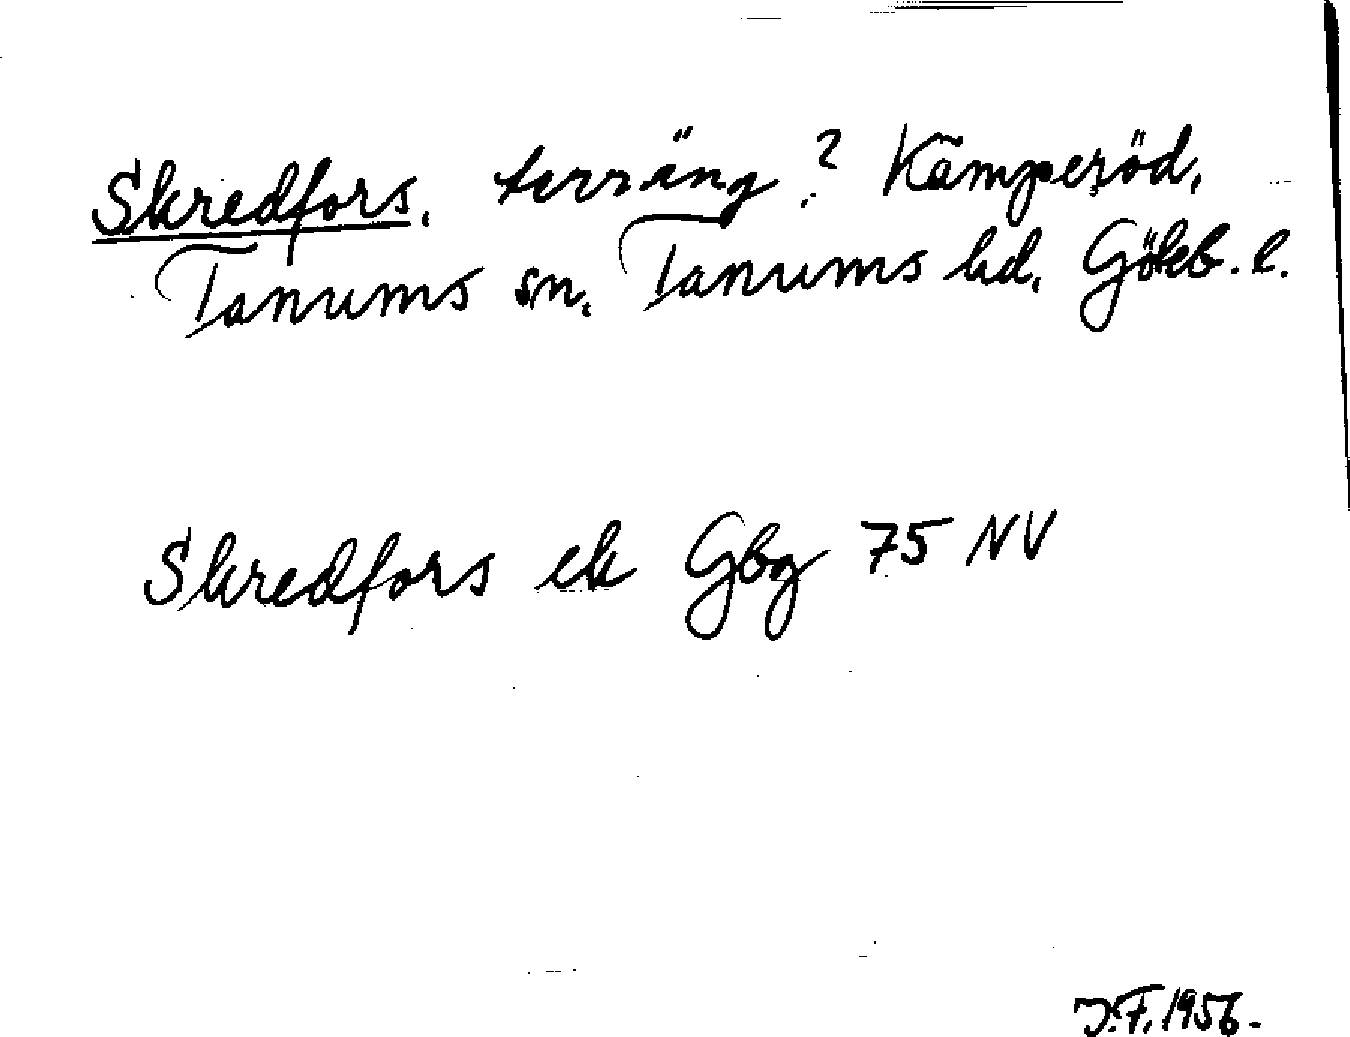 Skredfors. terräng? Kämperöd,
Tanums sn. Tanums hd. Göteb. l.
Skredfors ek Gbg 75 NV
J.F. 1956.